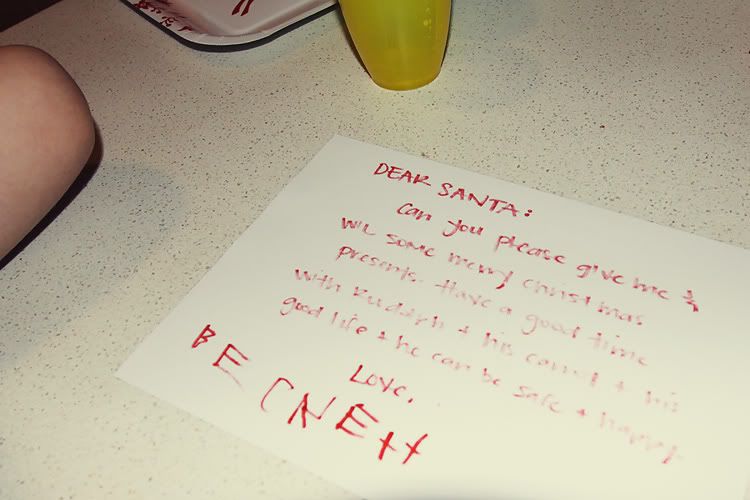 DEAR SANTA:
Can you please give me &
Wil some merry christmas
presents. Have a good time
with Rudolph + his carrot + his
good life + he can be safe + happy
Love,
BE CNEtt